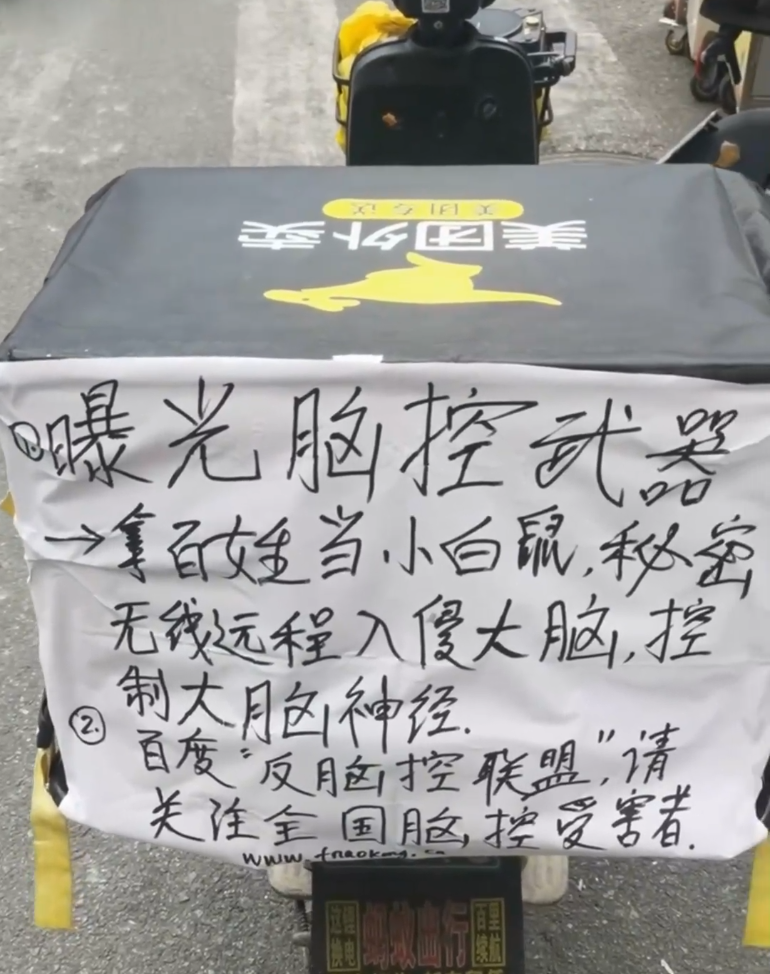 美团专送
美团外卖
①曝光脑控武器
→拿百姓当小白鼠,秘密
无线远程入侵大脑,控
制大脑神经.
②.百度“反脑控联盟”,请
关注全国脑控受害者.
蚂蚁出行
换电
百里
续航